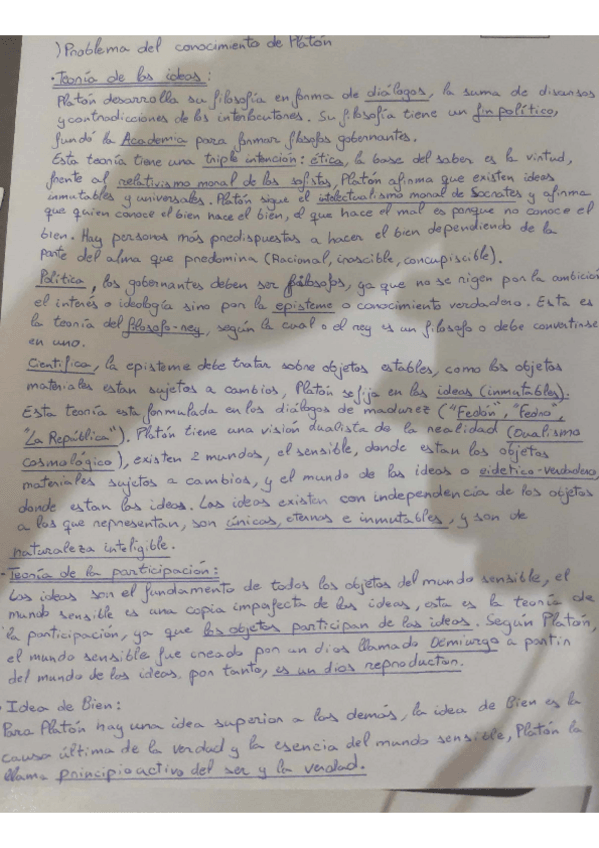 ) Problema del conocimiento de Platón
· Teoría de las ideas:
Platón desarrolla su filosofía en forma de diálogos, la suma de diversos
y contradicciones de los interlocutores. Su filosofía tiene un fin político,
fundó la Academia para formar filosofos gobernantes.
Esta teoría tiene una triple intención: ética, la base del saber es la virtud,
frente al relativismo moral de los sofistas, Platón afirma que existen ideas
inmutables y universales. Platón sigue el intelectualismo moral de Socrates y afirma
que quien conoce el bien hace el bien, el que hace el mal es porque no conoce el
bien. Hay personas más predispuestas a hacer el bien dependiendo de la
parte del alma que predomina (Racional, irascible, concupiscible).
Política, los gobernantes deben ser filósofos, ya que no se rigen por la ambición
el interés o ideología sino por la episteme o conocimiento verdadero. Esta es
la teoría del filosofo-rey, según la cual o el rey es un filosofo o debe convertirse
en uno.
Científica, la episteme debe tratar sobre objetos estables, como los objetos
materiales estan sujetos a cambios, Platón se fija en las ideas (inmutables).
Esta teoría esta formulada en los diálogos de madurez ("Fedón", "Fedro",
"La República"). Platón tiene una visión dualista de la realidad (Dualismo
Cosmológico), existen 2 mundos, el sensible, donde estan los objetos
materiales sujetos a cambios, y el mundo de las ideas o eidetico-verdadero,
donde estan las ideas. Las ideas existen con independencia de los objetos
a los que representan, son únicas, eternas e inmutables, y son de
naturaleza inteligible.
· Teoría de la participación:
Las ideas son el fundamento de todos los objetos del mundo sensible, el
mundo sensible es una copia imperfecta de las ideas, esta es la teoría de
la participación, ya que los objetos participan de las ideas. Según Platón,
el mundo sensible fue creado por un dios llamado Demiurgo a partir
del mundo de las ideas, por tanto, es un dios reproductor.
· Idea de Bien:
Para Platón hay una idea superior a las demás, la idea de Bien es la
causa última de la verdad y la esencia del mundo sensible, Platón la
llama principio activo del ser y la verdad.